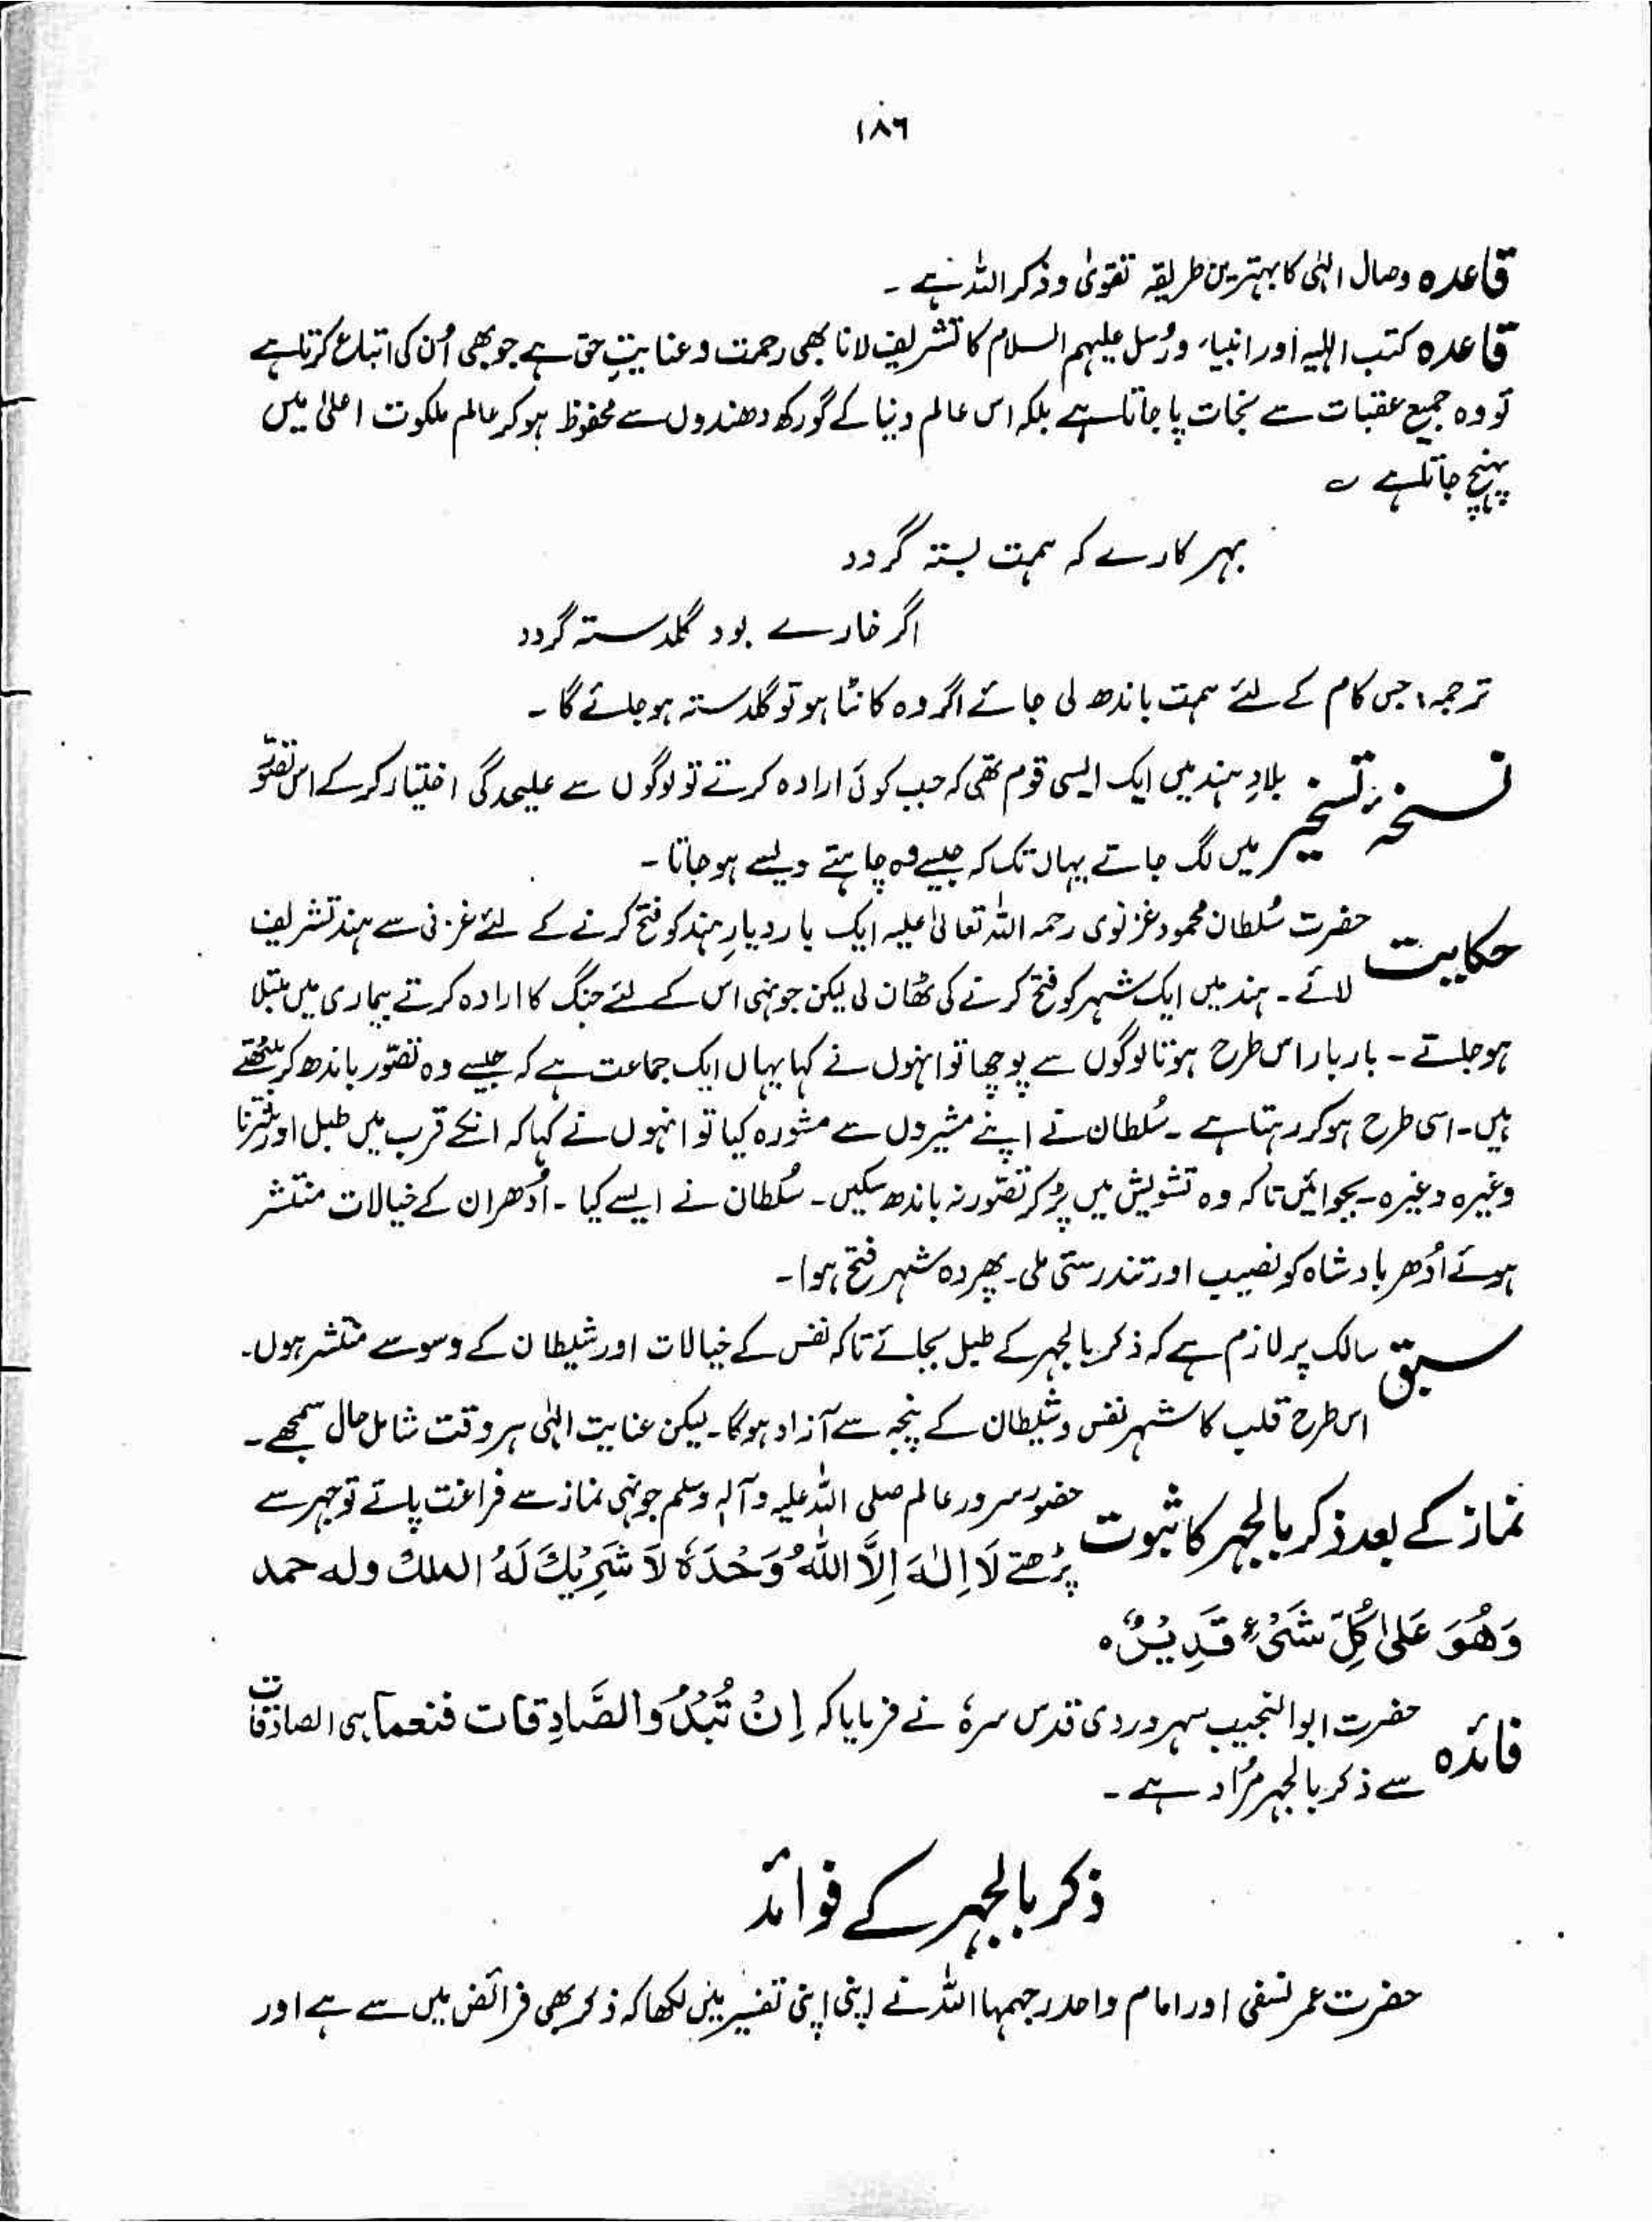 ١٨٦
قاعدہ وصال الٰہی کا بہترین طریقہ تقویٰ و ذکر اللہ ہے ۔
قاعدہ کتب الہٰیہ اور انبیاء و رُسل علیہم السلام کا تشریف لانا بھی رحمت و عنایتِ حق ہے جو بھی اُن کی اتباع کرتا ہے
تو وہ جمیع عقبات سے نجات پا جاتا ہے بلکہ اس عالم دنیا کے گورکھ دھندوں سے محفوظ ہو کر عالم ملکوت اعلیٰ میں
پہنچ جاتا ہے ؎
بہر کارے کہ ہمت بستہ گردد
اگر خارے بود گلدستہ گردد
ترجمہ: جس کام کے لئے ہمت باندھ لی جائے اگر وہ کانٹا ہو تو گلدستہ ہو جائے گا ۔
نسخہ تسخیر بلادِ ہند میں ایک ایسی قوم تھی کہ جب کوئی ارادہ کرتے تو لوگوں سے علیحدگی اختیار کر کے اس تصوّر
میں لگ جاتے یہاں تک کہ جیسے وہ چاہتے ویسے ہو جاتا ۔
حکایت حضرت سُلطان محمود غزنوی رحمہ اللہ تعالیٰ علیہ ایک بار دیارِ ہند کو فتح کرنے کے لئے غزنی سے ہند تشریف
لائے ۔ ہند میں ایک شہر کو فتح کرنے کی ٹھان لی لیکن جونہی اس کے لئے جنگ کا ارادہ کرتے بیماری میں مبتلا
ہو جاتے ۔ بار بار اس طرح ہوتا لوگوں سے پوچھا تو انہوں نے کہا یہاں ایک جماعت ہے کہ جیسے وہ تصوّر باندھ کر بیٹھتے
ہیں ۔ اسی طرح ہو کر رہتا ہے ۔ سُلطان نے اپنے مشیروں سے مشورہ کیا تو انہوں نے کہا کہ انکے قرب میں طبل اور نقرنا
وغیرہ وغیرہ بجوائیں تاکہ وہ تشویش میں پڑ کر تصّور نہ باندھ سکیں ۔ سُلطان نے ایسے کیا ۔ اُدھر ان کے خیالات منتشر
ہوئے اُدھر بادشاہ کو نصیب اور تندرستی ملی ۔ پھر وہ شہر فتح ہوا ۔
سبق سالک پر لازم ہے کہ ذکر بالجہر کے طبل بجائے تاکہ نفس کے خیالات اور شیطان کے وسوسے منتشر ہوں ۔
اس طرح قلب کا شہر نفس و شیطان کے پنجہ سے آزاد ہوگا ۔ لیکن عنایت الٰہی ہر وقت شامل حال سمجھے ۔
نماز کے بعد ذکر بالجہر کا ثبوت حضور سرور عالم صلی اللہ علیہ وآلہٖ وسلم جونہی نماز سے فراغت پاتے تو جہر سے
پڑھتے لَا اِلٰہَ اِلَّا اللّٰهُ وَحْدَهٗ لَا شَرِيْكَ لَهُ الملكُ وله حمد
وَهُوَ عَلىٰ كُلِّ شَىْءٍ قَدِيْرٌ ه
فائدہ حضرت ابوالنجیب سہروردی قدس سرہٗ نے فرمایا کہ اِنْ تُبْدُوا الصَّادِقات فنعما ہی الصادقات
سے ذکر بالجہر مُراد ہے ۔
ذکر بالجہر کے فوائد
حضرت عمر نسفی اور امام واحد رحمہما اللہ نے اپنی اپنی تفسیر میں لکھا کہ ذکر بھی فرائض میں سے ہے اور